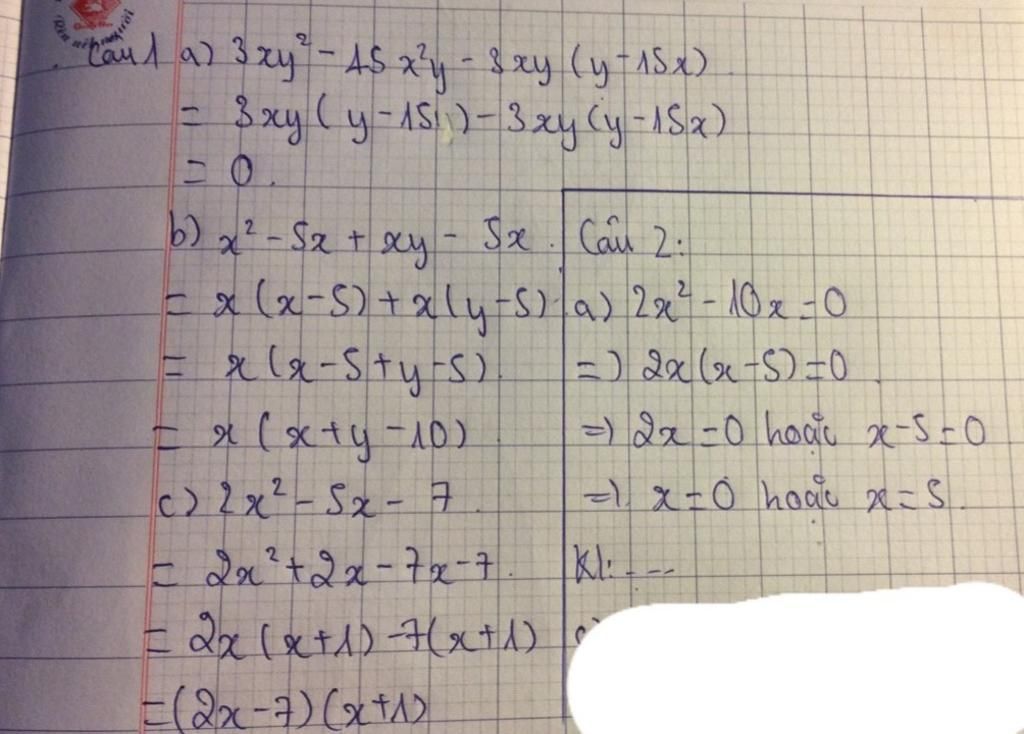 Câu 1 a) 3xy² - 15x²y - 3xy (y - 15x)
= 3xy (y - 15 ) - 3xy (y - 15x)
= 0.
b) x² - 5x + xy - 5x.
= x (x - 5) + x (y - 5)
= x (x - 5 + y - 5).
= x (x + y - 10)
c) 2x² - 5x - 7
= 2x² + 2x - 7x - 7.
= 2x (x + 1) - 7 (x + 1)
= (2x - 7) (x + 1)
Câu 2:
a) 2x² - 10x = 0
=) 2x (x - 5) = 0
=) 2x = 0 hoặc x - 5 = 0
=) x = 0 hoặc x = 5.
Kl: ---